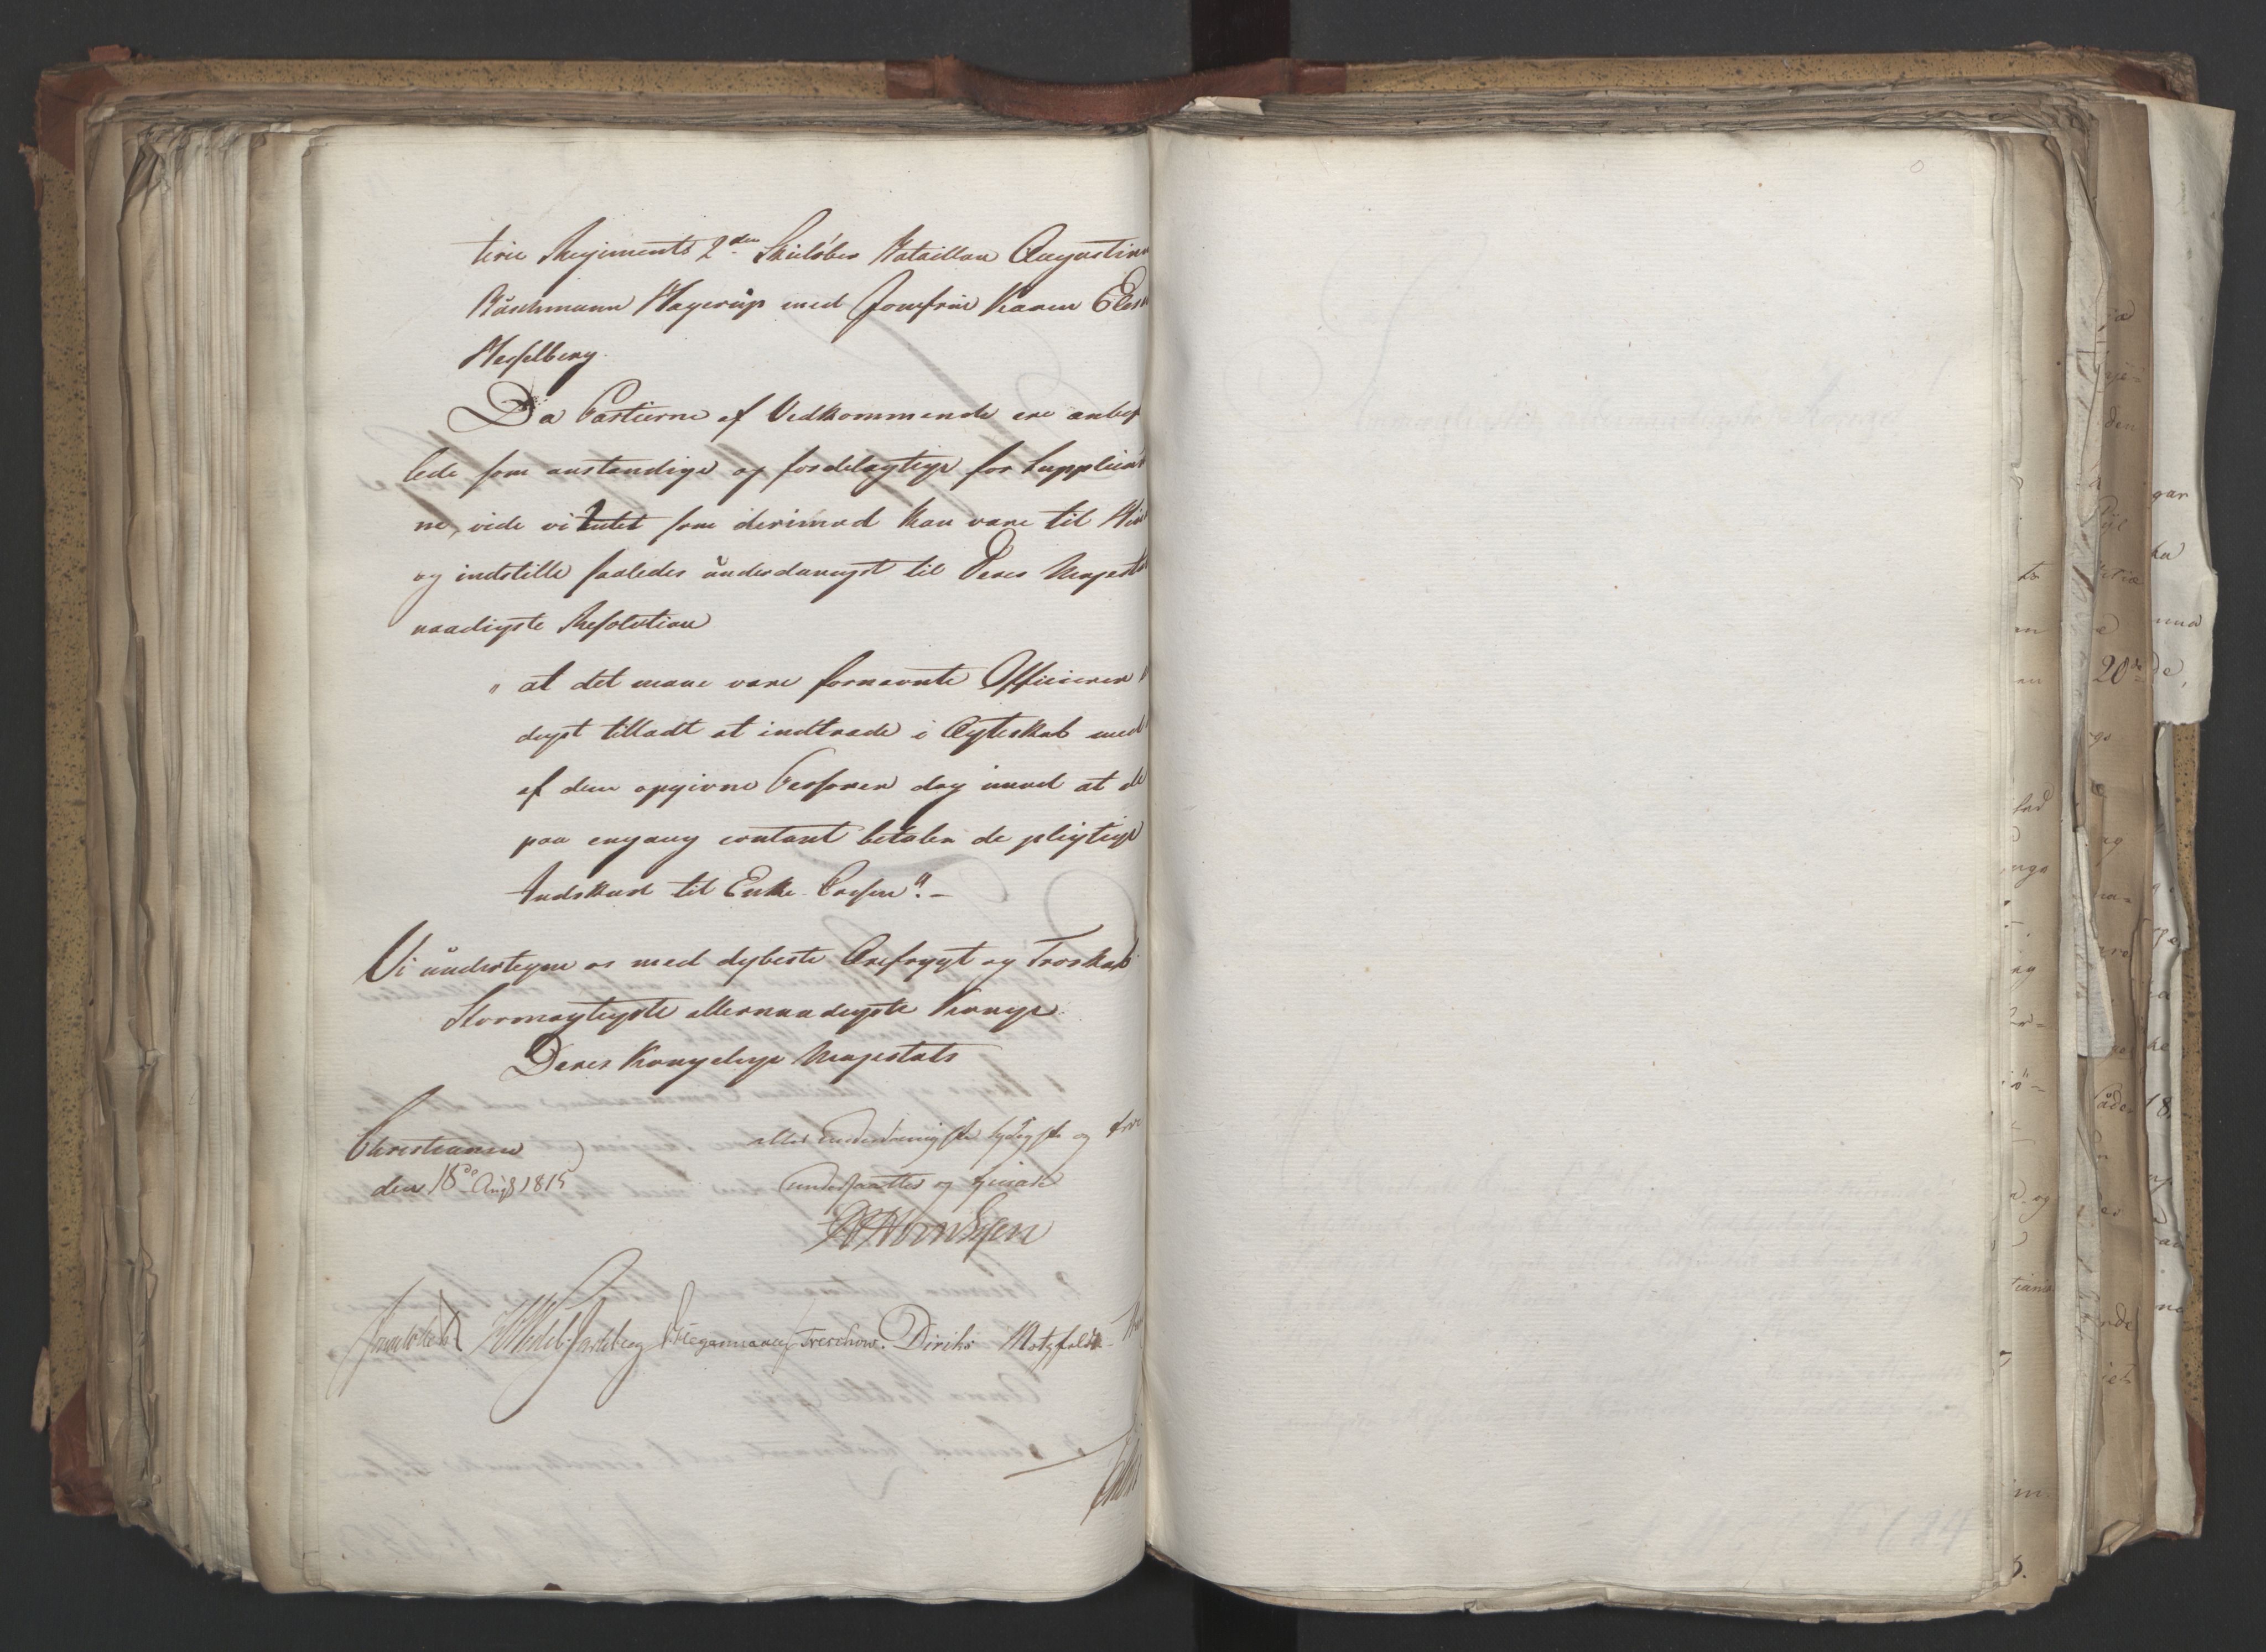 terie Regiments 2den Skieløber Bataillon Augustinu
Büschmann Hagerup med Jomfrue Karen Eleo
Hesselberg.
Da Partierne af Vedkommende ere anbef
lede som anstændige og fordelagtige for Supplican
ne, vide vi Intet som derimod kan være til Hin
og indstille saaledes underdanigst til Deres Majestæ
naadigste Resolution
" at det maae være fornævnte Officierer
digst tilladt at indtræde i Ægteskab med
af dem opgivne Personer dog imod at de
paa engang contant betaler de pligtige
Indskud til Enke-Cassen". –
Vi undertegne os med dybeste Ærefrygt og Troskab
Stormægtigste allernaadigste Konge
Deres Kongelige Majestæts
Christiania
den 18de Augs 1815
aller underdanigste lydigste og troe
undersaatter og tjenere
Hornsjen
HWedel-Jarlsberg Hegermann Treschow. Diriks Motzfeldt